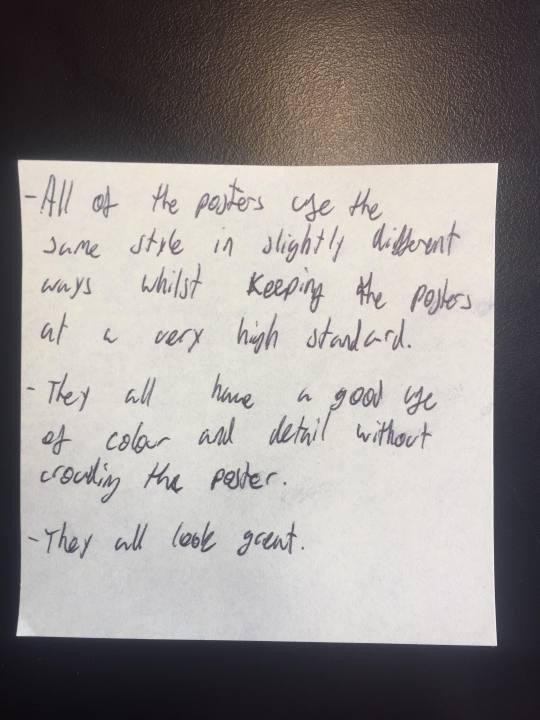 - All of the posters use the
same style in slightly different
ways whilst keeping the posters
at a very high standard.
- They all have a good use
of colour and detail without
crowding the poster.
- They all look great.